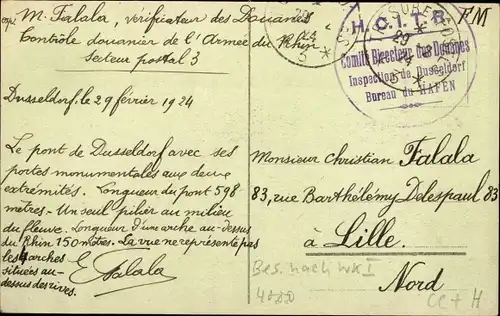 M. Falala, vérificateur des Douanes
Contrôle douanier de l'Armée du Rhin
Secteur postal 3
FM
H.C.I.T.R.
Comité Directeur des Douanes
Inspection de Dusseldorf
Bureau du HAFEN
29
Dusseldorf, le 29 février 1924
Le pont de Dusseldorf avec ses
portes monumentales aux deux
extrémités. Longueur du pont 598
mètres - Un seul pilier au milieu
du fleuve. Longueur d'une arche au-dessus
du Rhin 150 mètres. La vue ne représente pas
les 4 arches
situées au-
dessus des rives.
E. Falala
Monsieur Christian Falala
83, rue Barthélémy Delespaul 83
à Lille
Nord
Bes. nach WK I
CC7 H